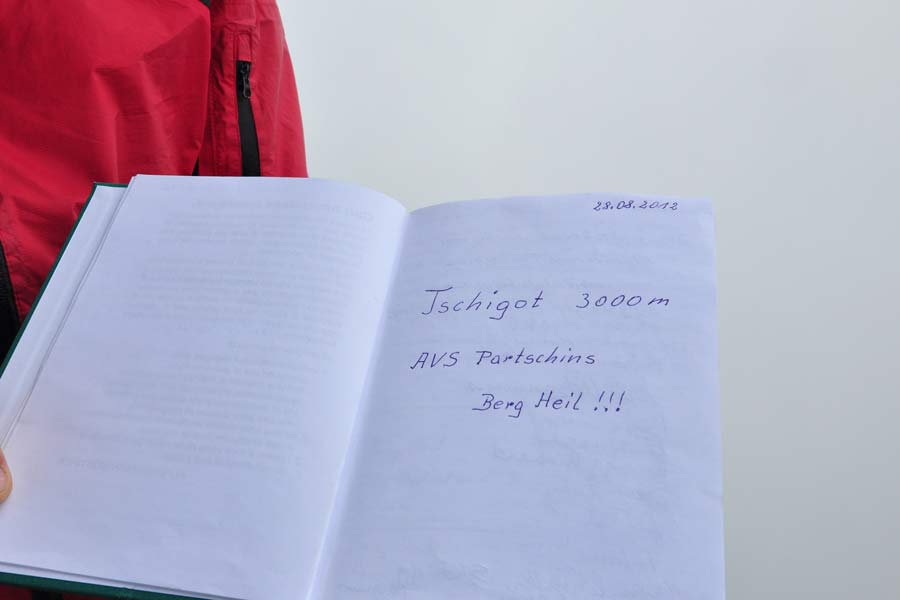 28.08.2012
Tschigot 3000 m
AVS Partschins
Berg Heil !!!